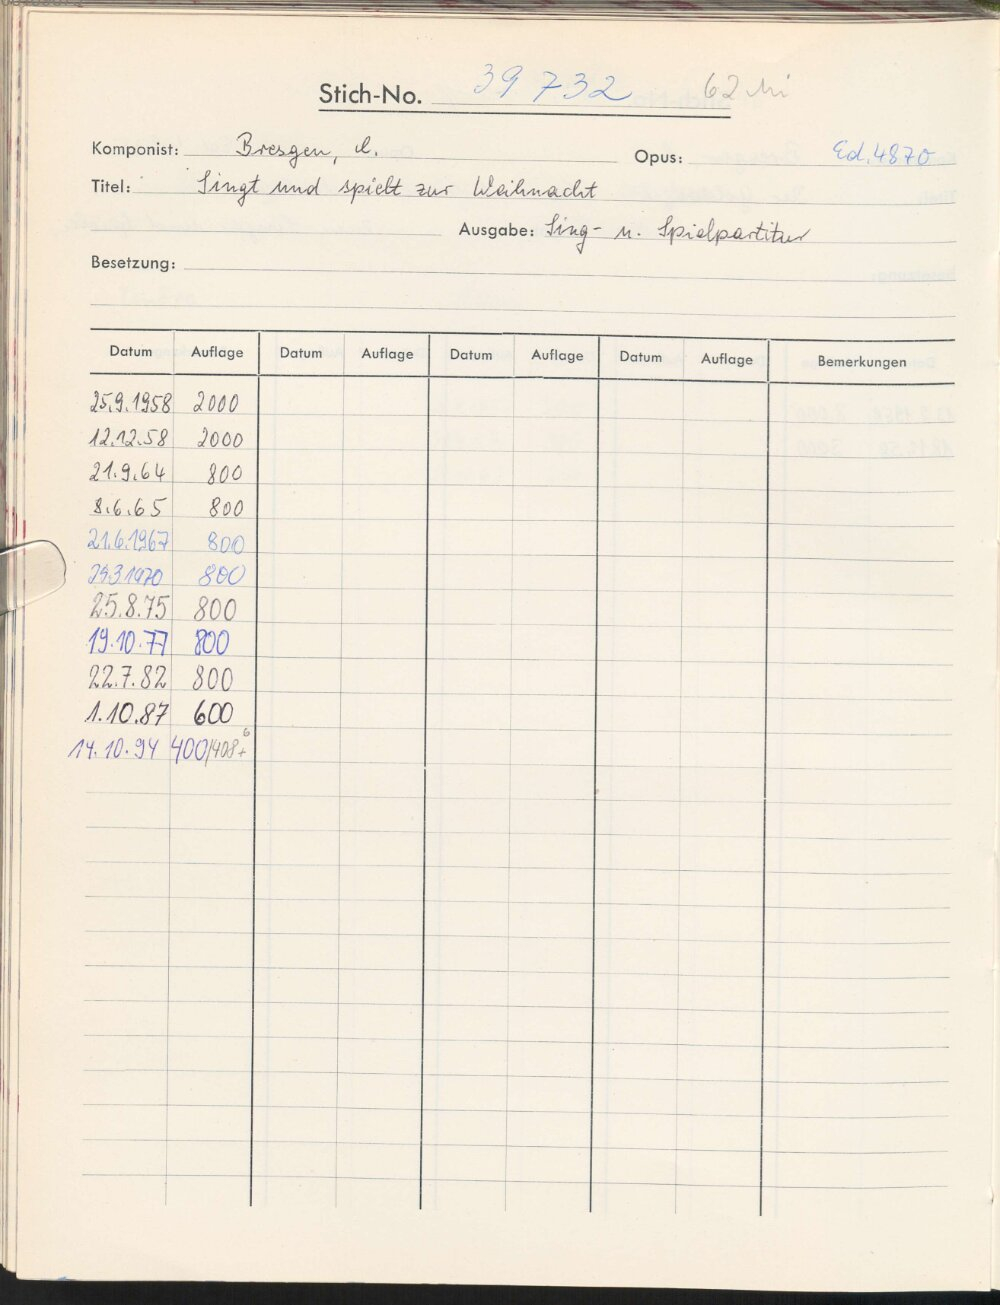 Stich-No. 39732 62
Komponist: Bresgen, C. Opus: Ed. 4870
Titel: Singt und spielt zur Weihnacht
Ausgabe: Sing- u. Spielpartitur
Besetzung:
Datum Auflage Datum Auflage Datum Auflage Datum Auflage Bemerkungen
25.9.1958 2000
12.12.58 2000
21.9.64 800
8.6.65 800
21.6.1967 800
800
25.8.75 800
19.10.77 800
22.7.82 800
1.10.87 600
14.10.94 400/408+6